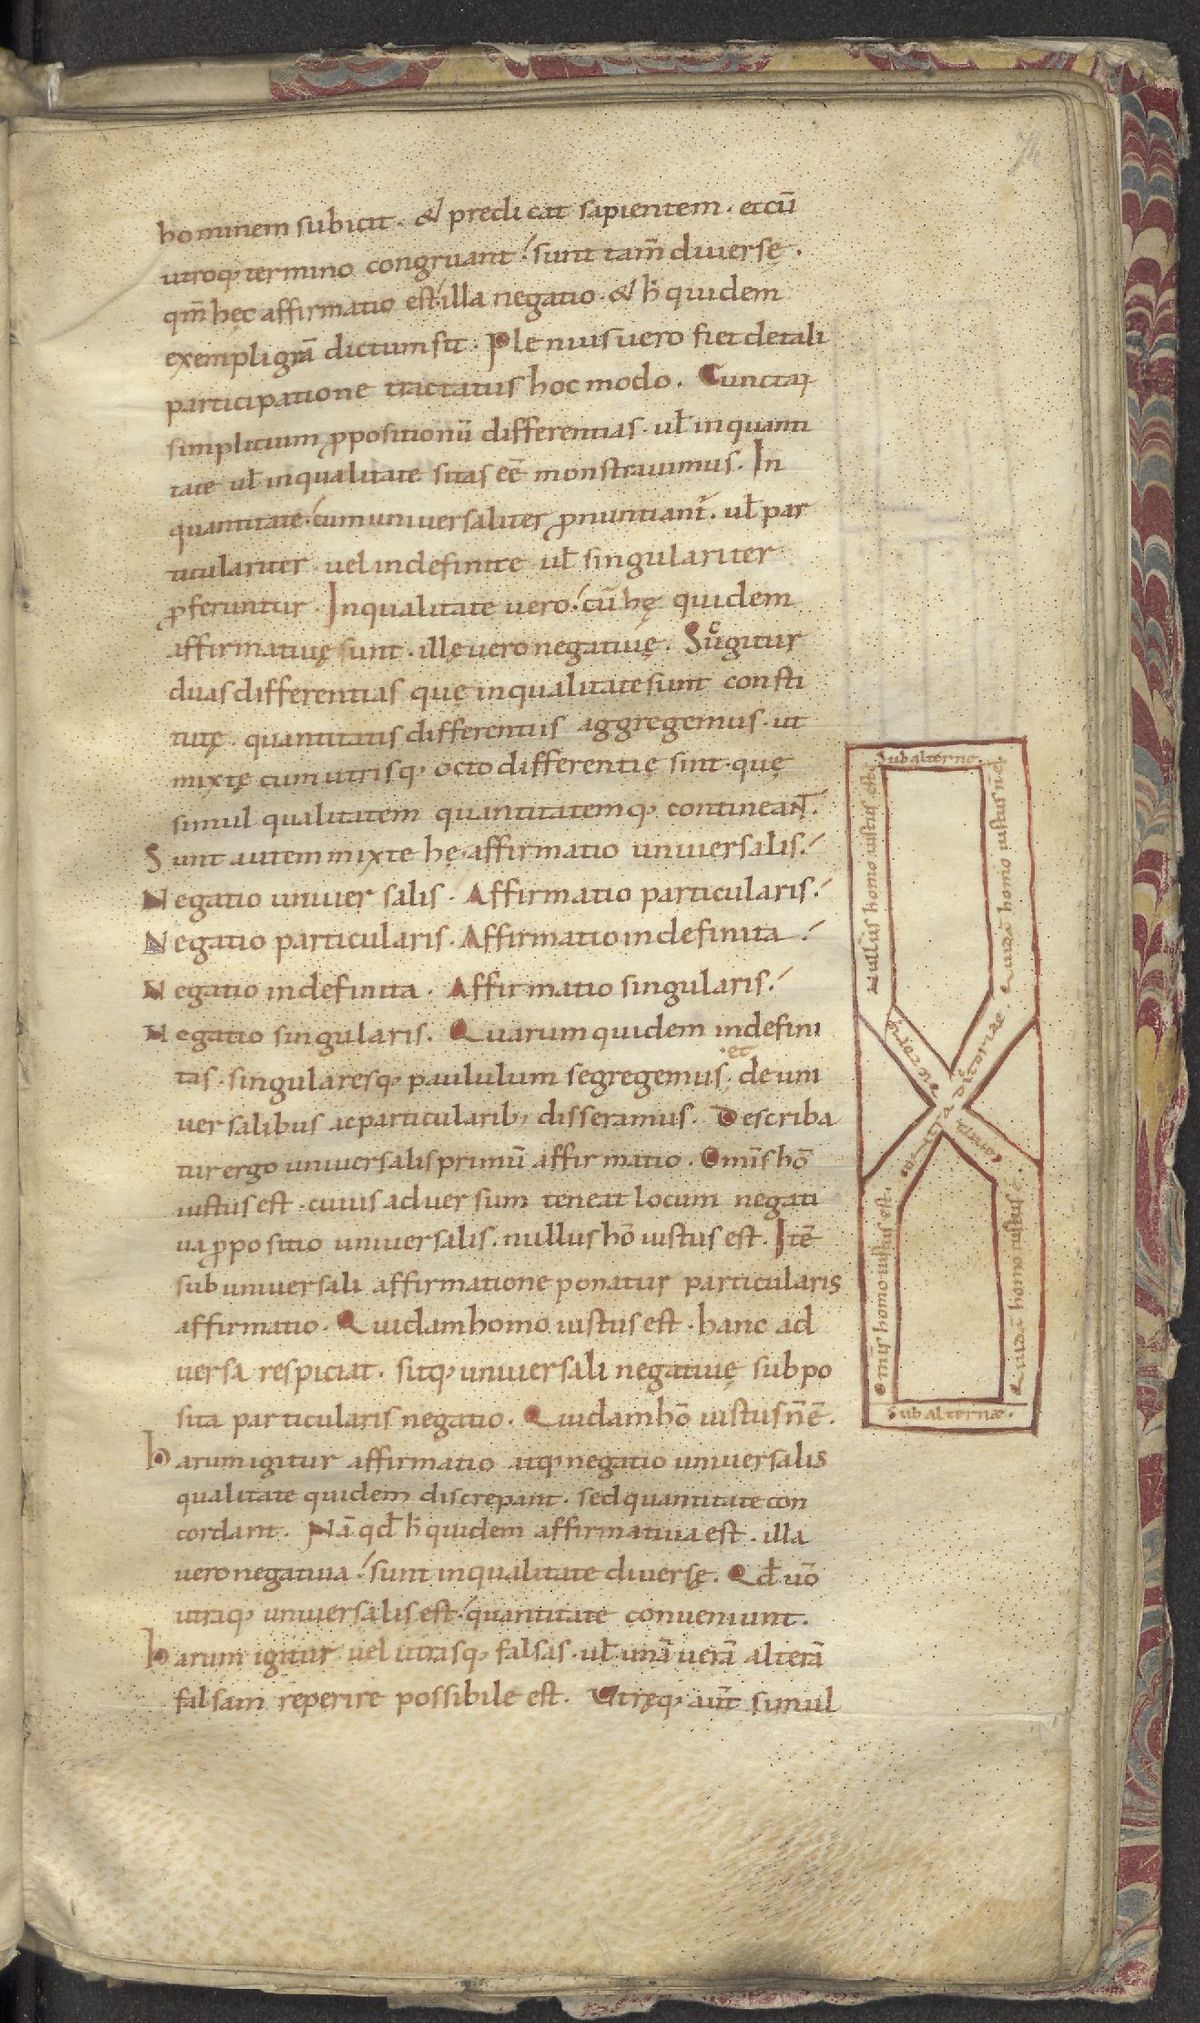 hominem subicit . & predicat sapientem . et cū
utroq; termino congruant : sunt tam̄ diuersę .
qm̄ hęc affirmatio est illa negatio . & h̄ quidem
exempli grā dictum sit . Plenius uero fiet de tali
participatione tractatus hoc modo . Cunctaꝝ
simplicium ꝓpositionū differentias . ul̄ in quanti
tate ul̄ in qualitate sitas eē monstrauimus . In
quantitate : cum uniuersaliter ꝓnuntiant̄ . ul̄ par
ticulariter . uel indefinite ul̄ singulariter
ꝓferuntur . In qualitate uero : cū hę quidem
affirmatiuę sunt . illę uero negatiuę . Si igitur
duas differentias quę in qualitate sunt consti
tutę . quantitatis differentiis aggregemus . ut
mixtę cum utrisq; octo differentię sint . quę
simul qualitatem quantitatemq; contineant .
Sunt autem mixte hę . affirmatio uniuersalis .
Negatio uniuersalis . Affirmatio particularis .
Negatio particularis . Affirmatio indefinita .
Negatio indefinita . Affirmatio singularis .
Negatio singularis . Quarum quidem indefini
tas . singularesq; paululum segregemus . et de uni
uersalibus ac particularib; disseramus . Describa
tur ergo uniuersalis primū affirmatio . Omīs hō
iustus est . cuius aduersum teneat locum negati
ua ꝓpositio uniuersalis . nullus hō iustus est . Itē
sub uniuersali affirmatione ponatur particularis
affirmatio . Quidam homo iustus est . hanc ad
uersa respiciat . sitq; uniuersali negatiuę subpo
sita particularis negatio . Quidam hō iustus n̄ ē .
harum igitur affirmatio atq; negatio uniuersalis
qualitate quidem discrepant . sed quantitate con
cordant . Nā qd̄ h̄ quidem affirmatiua est . illa
uero negatiua : sunt in qualitate diuersę . Qd̄ uō
utriq; uniuersalis est : quantitate conueniunt .
harum igitur uel utrasq; falsas . ul̄ unā uerā alterā
falsam reperire possibile est . Utręq; aut̄ simul
Subalternę .
Nullus homo iustus est
Quidā homo iustus n̄ ē
Contra dictoriae .
Omīs homo iustus est .
Quidā homo iustus ē .
Subalternae .